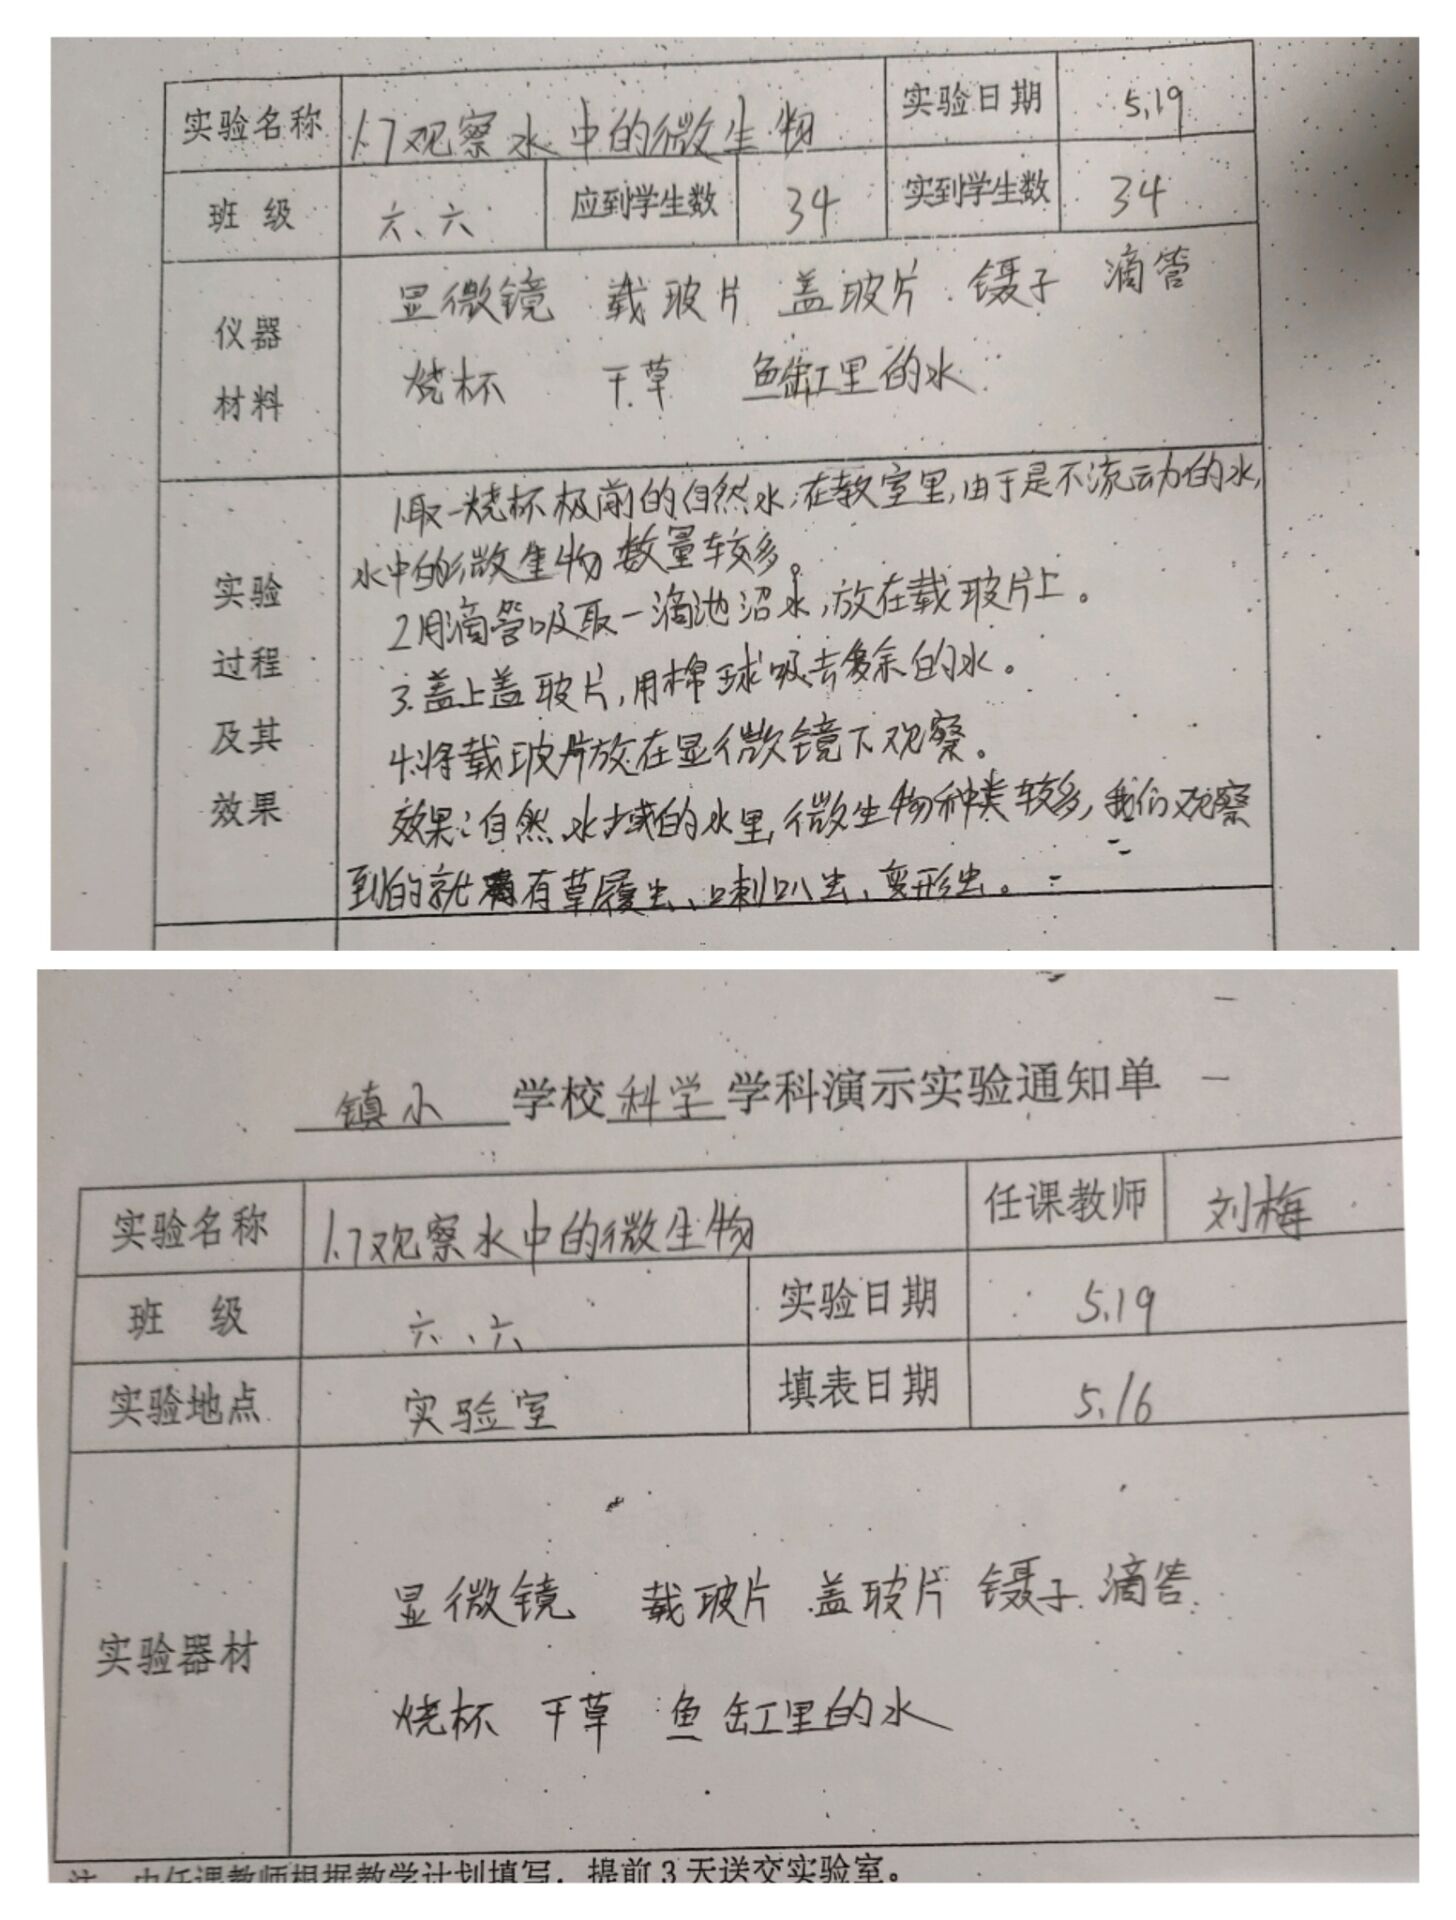 实验名称 1.7观察水中的微生物 实验日期 5.19
班级 六、六 应到学生数 34 实到学生数 34
仪器材料
显微镜 载玻片 盖玻片 镊子 滴管
烧杯 干草 鱼缸里的水
实验过程及其效果
1.取一烧杯极前的自然水,在教室里,由于是不流动的水,
水中的微生物数量较多。
2.用滴管吸取一滴池沼水,放在载玻片上。
3.盖上盖玻片,用棉球吸去多余的水。
4.将载玻片放在显微镜下观察。
效果:自然水域的水里,微生物种类较多,我们观察
到的就有草履虫、喇叭虫、变形虫。
镇小 学校 科学 学科演示实验通知单
实验名称 1.7观察水中的微生物 任课教师 刘梅
班级 六、六 实验日期 5.19
实验地点 实验室 填表日期 5.16
实验器材
显微镜 载玻片 盖玻片 镊子 滴管
烧杯 干草 鱼缸里的水
注 由任课教师根据教学计划填写,提前3天送交实验室。